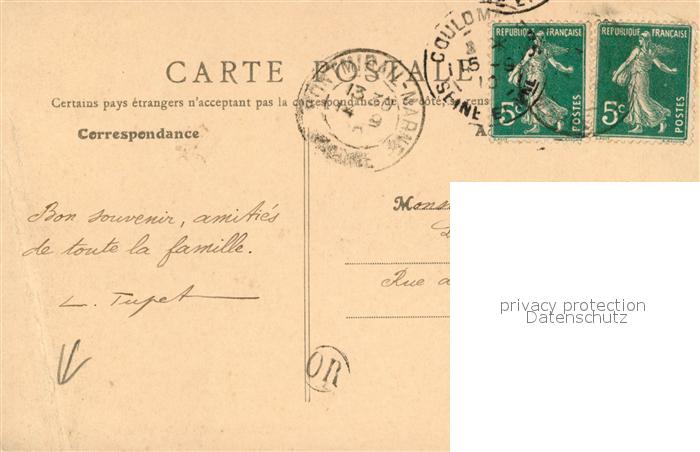 CARTE POSTALE
Certains pays étrangers n'acceptent pas la correspondance de ce côté, se rens
Correspondance
COULOMM
15
10
SEINE ET
REPUBLIQUE FRANÇAISE
5c
POSTES
REPUBLIQUE FRANÇAISE
5c
POSTES
MARNE
Bon souvenir, amitiés
de toute la famille.
L. Tupet
Mons
Rue a
OR
privacy protection
Datenschutz